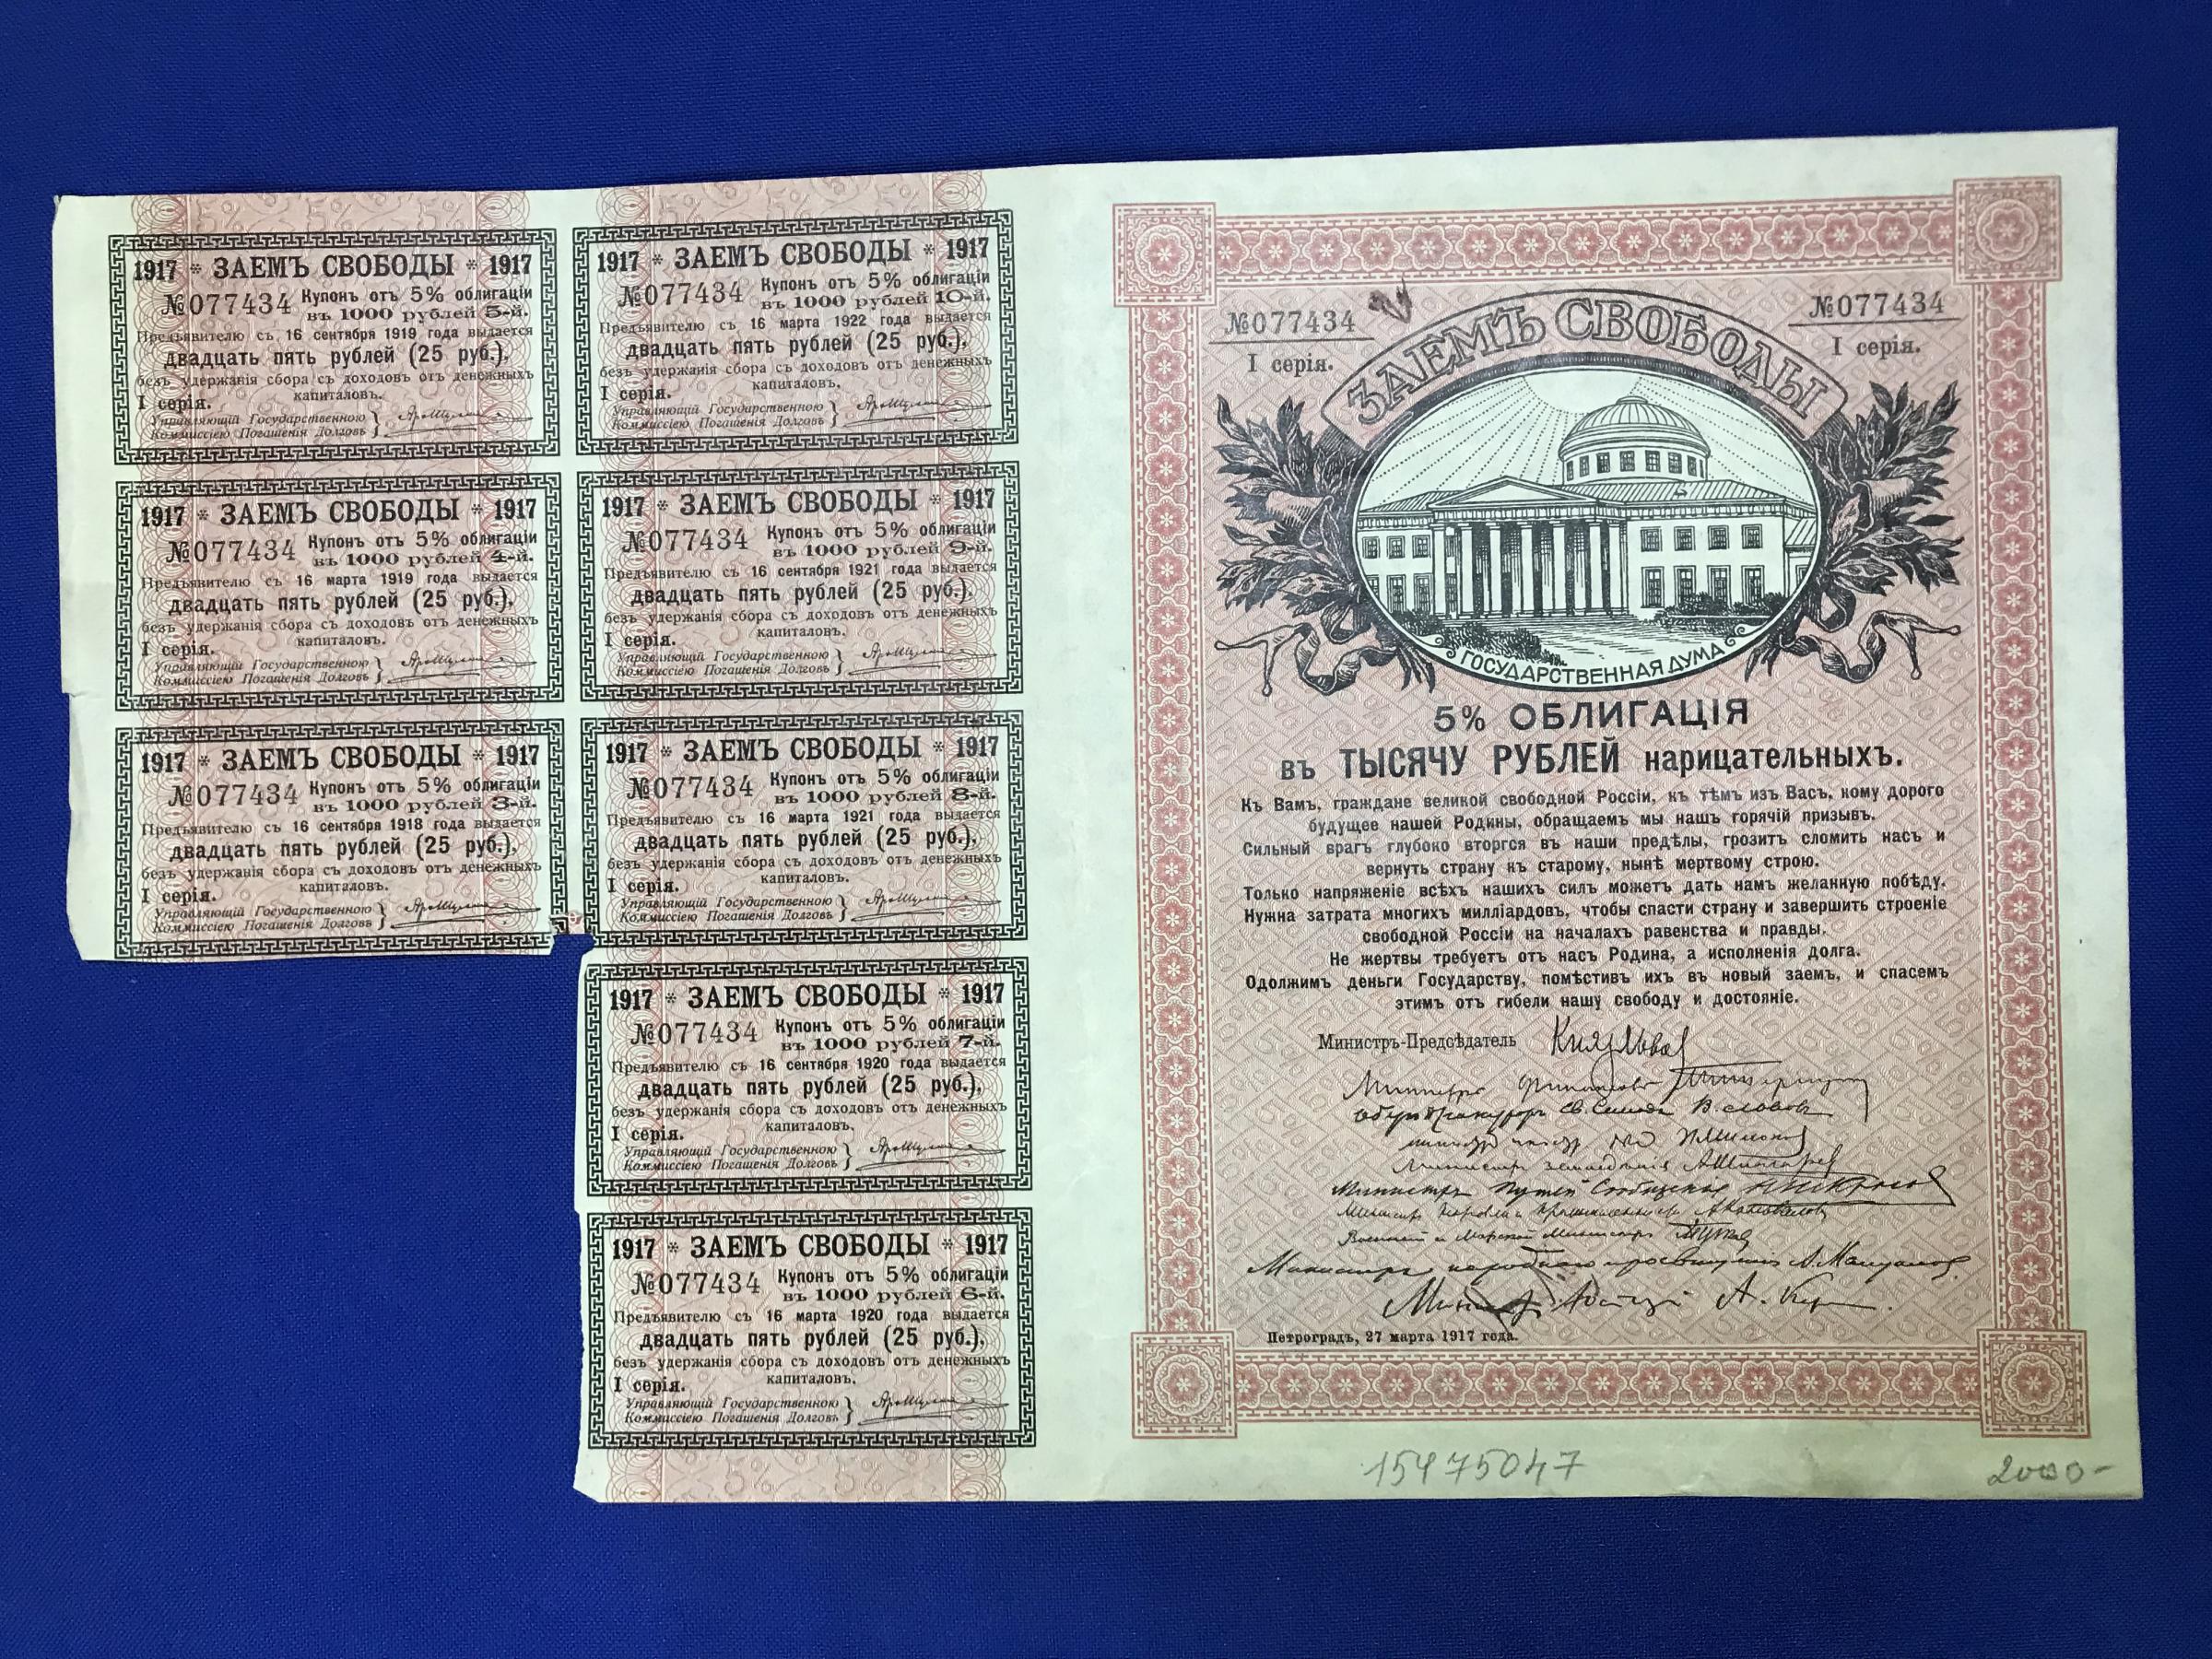 1917 * ЗАЕМЪ СВОБОДЫ * 1917
№077434 Купонъ отъ 5% облигаціи
въ 1000 рублей 5-й.
Предъявителю съ 16 сентября 1919 года выдается
двадцать пять рублей (25 руб.),
безъ удержанія сбора съ доходовъ отъ денежныхъ
капиталовъ.
I серія.
Управляющій Государственною
Коммиссіею Погашенія Долговъ
1917 * ЗАЕМЪ СВОБОДЫ * 1917
№077434 Купонъ отъ 5% облигаціи
въ 1000 рублей 4-й.
Предъявителю съ 16 марта 1919 года выдается
двадцать пять рублей (25 руб.),
безъ удержанія сбора съ доходовъ отъ денежныхъ
капиталовъ.
I серія.
Управляющій Государственною
Коммиссіею Погашенія Долговъ
1917 * ЗАЕМЪ СВОБОДЫ * 1917
№077434 Купонъ отъ 5% облигаціи
въ 1000 рублей 3-й.
Предъявителю съ 16 сентября 1918 года выдается
двадцать пять рублей (25 руб.),
безъ удержанія сбора съ доходовъ отъ денежныхъ
капиталовъ.
I серія.
Управляющій Государственною
Коммиссіею Погашенія Долговъ
1917 * ЗАЕМЪ СВОБОДЫ * 1917
№077434 Купонъ отъ 5% облигаціи
въ 1000 рублей 10-й.
Предъявителю съ 16 марта 1922 года выдается
двадцать пять рублей (25 руб.),
безъ удержанія сбора съ доходовъ отъ денежныхъ
капиталовъ.
I серія.
Управляющій Государственною
Коммиссіею Погашенія Долговъ
1917 * ЗАЕМЪ СВОБОДЫ * 1917
№077434 Купонъ отъ 5% облигаціи
въ 1000 рублей 9-й.
Предъявителю съ 16 сентября 1921 года выдается
двадцать пять рублей (25 руб.),
безъ удержанія сбора съ доходовъ отъ денежныхъ
капиталовъ.
I серія.
Управляющій Государственною
Коммиссіею Погашенія Долговъ
1917 * ЗАЕМЪ СВОБОДЫ * 1917
№077434 Купонъ отъ 5% облигаціи
въ 1000 рублей 8-й.
Предъявителю съ 16 марта 1921 года выдается
двадцать пять рублей (25 руб.),
безъ удержанія сбора съ доходовъ отъ денежныхъ
капиталовъ.
I серія.
Управляющій Государственною
Коммиссіею Погашенія Долговъ
1917 * ЗАЕМЪ СВОБОДЫ * 1917
№077434 Купонъ отъ 5% облигаціи
въ 1000 рублей 7-й.
Предъявителю съ 16 сентября 1920 года выдается
двадцать пять рублей (25 руб.),
безъ удержанія сбора съ доходовъ отъ денежныхъ
капиталовъ.
I серія.
Управляющій Государственною
Коммиссіею Погашенія Долговъ
1917 * ЗАЕМЪ СВОБОДЫ * 1917
№077434 Купонъ отъ 5% облигаціи
въ 1000 рублей 6-й.
Предъявителю съ 16 марта 1920 года выдается
двадцать пять рублей (25 руб.),
безъ удержанія сбора съ доходовъ отъ денежныхъ
капиталовъ.
I серія.
Управляющій Государственною
Коммиссіею Погашенія Долговъ
№077434
I серія.
№077434
I серія.
ЗАЕМЪ СВОБОДЫ
ГОСУДАРСТВЕННАЯ ДУМА
5% ОБЛИГАЦІЯ
въ ТЫСЯЧУ РУБЛЕЙ нарицательныхъ.
Къ Вамъ, граждане великой свободной Россіи, къ тѣмъ изъ Васъ, кому дорого
будущее нашей Родины, обращаемъ мы нашъ горячій призывъ.
Сильный врагъ глубоко вторгся въ наши предѣлы, грозитъ сломить насъ и
вернуть страну къ старому, нынѣ мертвому строю.
Только напряженіе всѣхъ нашихъ силъ можетъ дать намъ желанную побѣду.
Нужна затрата многихъ милліардовъ, чтобы спасти страну и завершить строеніе
свободной Россіи на началахъ равенства и правды.
Не жертвы требуетъ отъ насъ Родина, а исполненія долга.
Одолжимъ деньги Государству, помѣстивъ ихъ въ новый заемъ, и спасемъ
этимъ отъ гибели нашу свободу и достояніе.
Министръ-Предсѣдатель Князь Львов
Министръ финансовъ
Оберъ Прокуроръ Св. Синода В. Львовъ
Министръ земледѣлія А Шингарев
Министръ Путей Сообщенія Н Некрасов
Министръ торговли и промышленности А Коновалов
Военный и Морской Министръ
Министръ народнаго просвѣщенія А. Мануйлов
Министр Юстиціи А. Кер
Петроградъ, 27 марта 1917 года.
15475047
2000-